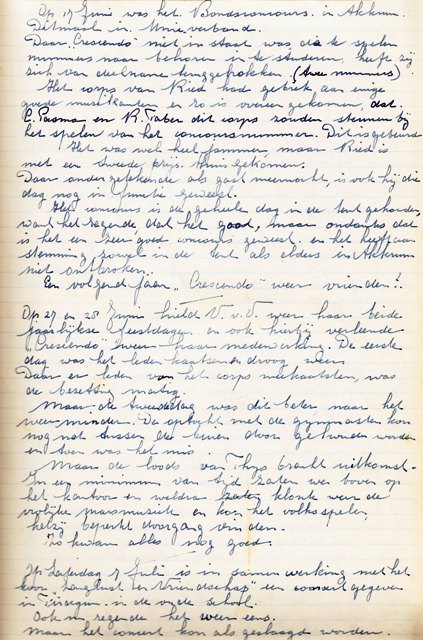 Op 17 Juni was het Bondsconcours in Akkrum.
Ditmaal in Unieverband.
Daar „Crescendo" niet in staat was de te spelen
nummers naar behoren in te studeren, heeft zij
zich van deelname teruggetrokken. (twee nummers)
Het corps van Ried had gebrek aan enige
goede muzikanten en zo is overeen gekomen, dat
C. Posma en R. Faber dit corps zouden steunen bij
het spelen van het concoursnummer. Dit is gebeurd
Het was wel heel jammer, maar Ried is
met een tweede prijs thuis gekomen.
Daar ondergetekende als gast meemocht, is ook hij die
dag nog in functie geweest.
Het concours is de gehele dag in de tent gehouden,
want het regende dat het goot, maar ondanks dat
is het een zeer goed concours geweest en het heeft aan
stemming zowel in de tent als elders in Akkrum
niet ontbroken.
Een volgend jaar „Crescendo" weer vrienden!?
Op 27 en 28 Juni hield V.v.V. weer haar beide
jaarlijkse feestdagen en ook hierbij verleende
„Crescendo" weer haar medewerking. De eerste
dag was het ledenkaatsen en droog weer.
Daar er leden van het corps meekaatsten, was
de bezetting matig.
Maar de tweede dag was dit beter maar het
weer minder. De optocht met de gymnasten kon
nog net tussen de buien door gehouden worden
en toen was het mis.
Maar de loods van Thijs bracht uitkomst.
In een minimum van tijd zaten we boven op
het kantoor en weldra klonk weer de
vrolijke marsmuziek en kon het volksspelen,
hetzij beperkt doorgang vinden.
Zo kwam alles nog goed.
Op Zaterdag 7 Juli is in samenwerking met het
koor „Zanglust en Vriendschap" een concert gegeven
in de school.
Ook nu regende het weer eens,
maar het concert kon als geslaagd worden